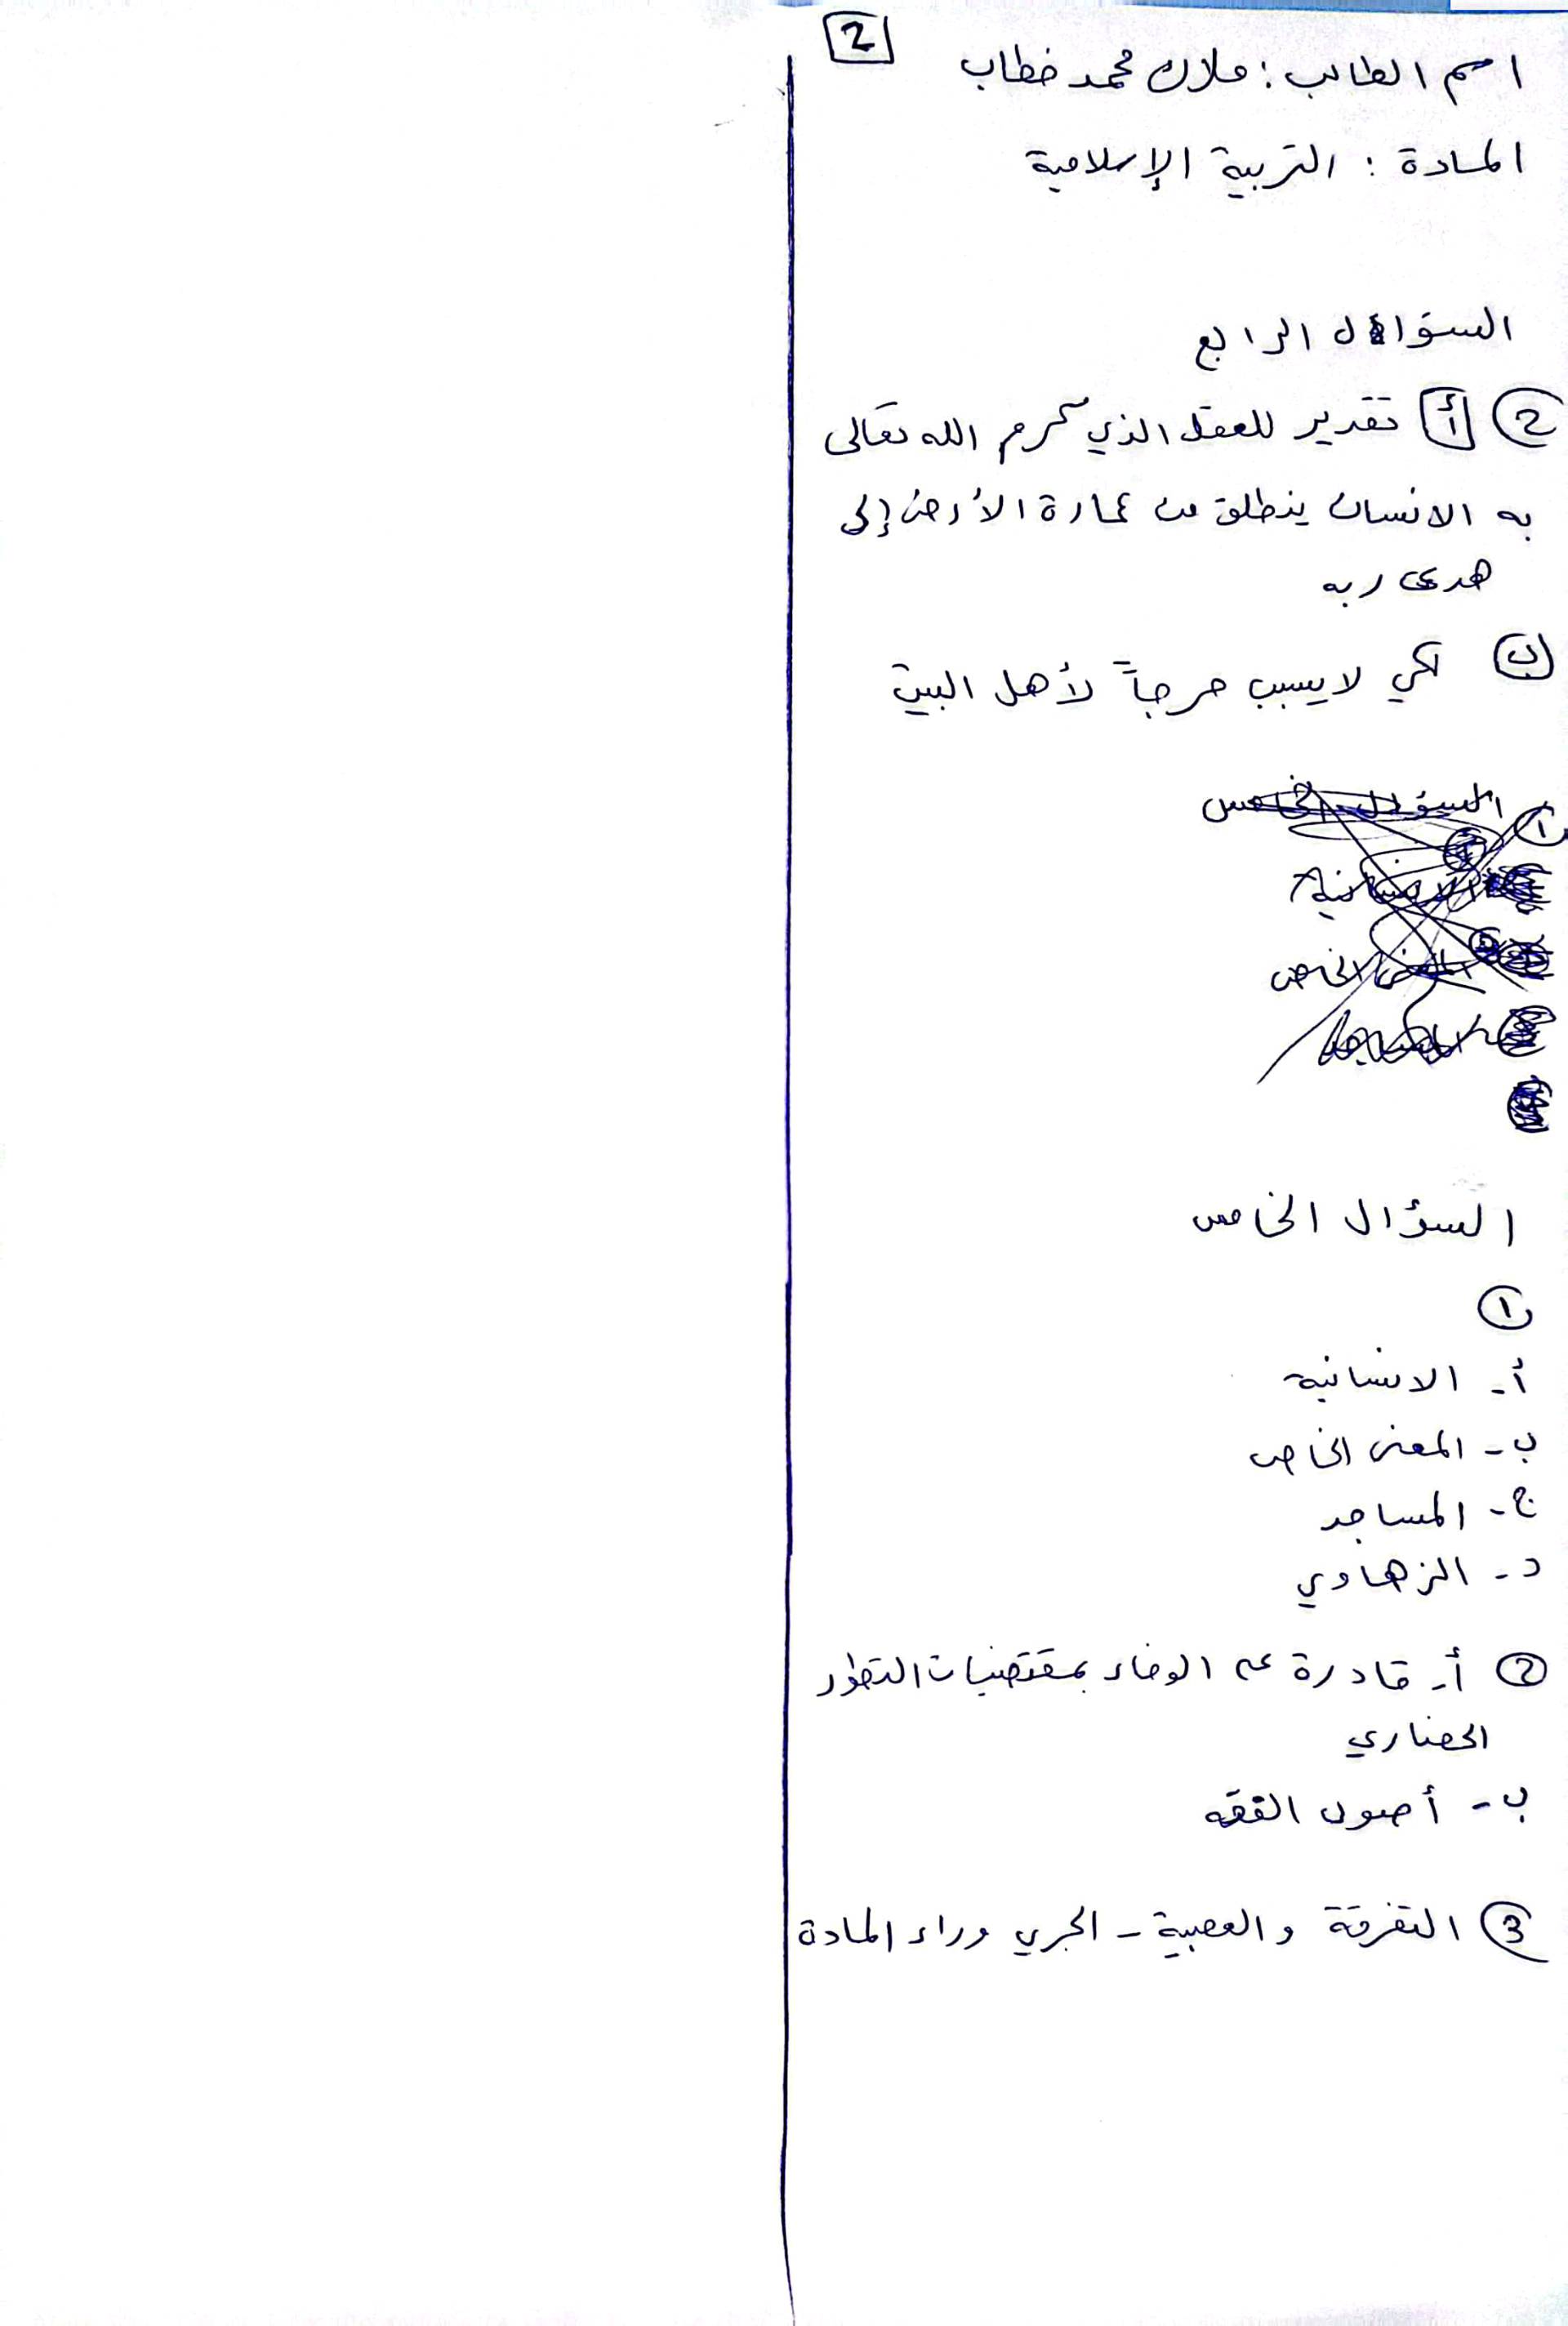 2
اسم الطالب : ملاك محمد خطاب
المادة : التربية الإسلامية
السؤال الرابع
2 أ تقدير للعقل الذي كرم الله تعالى
به الانسان ينطلق من عمارة الأرض إلى
هدى ربه
ب لكي لا يسبب حرجاً لأهل البيت
السؤال الخامس
١
الانسانية
المعنى الخاص
السؤال الخامس
١
أ- الانسانية
ب- المعنى الخاص
ج- المساجد
د- الزهاوي
2 أ- قادرة على الوفاء بمقتضيات التطور
الحضاري
ب- أصول الفقه
3 التفرقة والعصبية - الجري وراء المادة